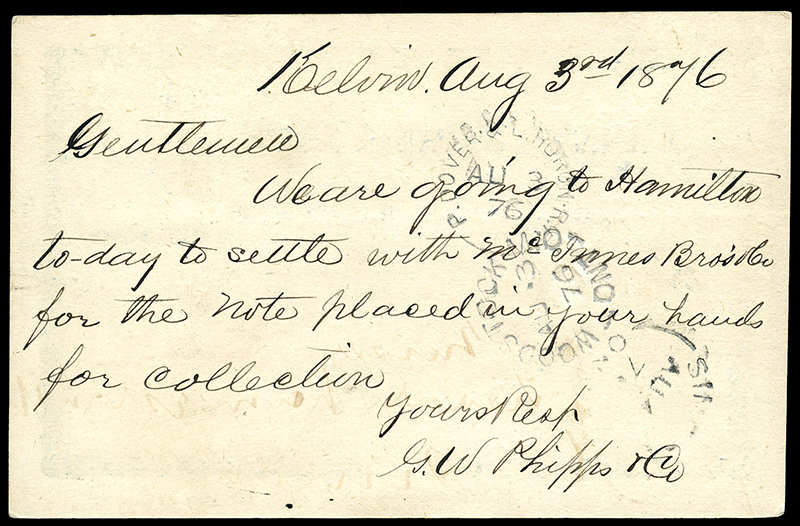 Kelvin. Aug 3rd 1876
Gentlemen
We are going to Hamilton
to-day to settle with McInnes Bros & Co
for the note placed in your hands
for collection
Yours Resp
G. W Phipps & Co
P. DOVER & L. HURON R.
AU 3
76
WOODSTOCK ONT
AU 3
76
SIM
AU